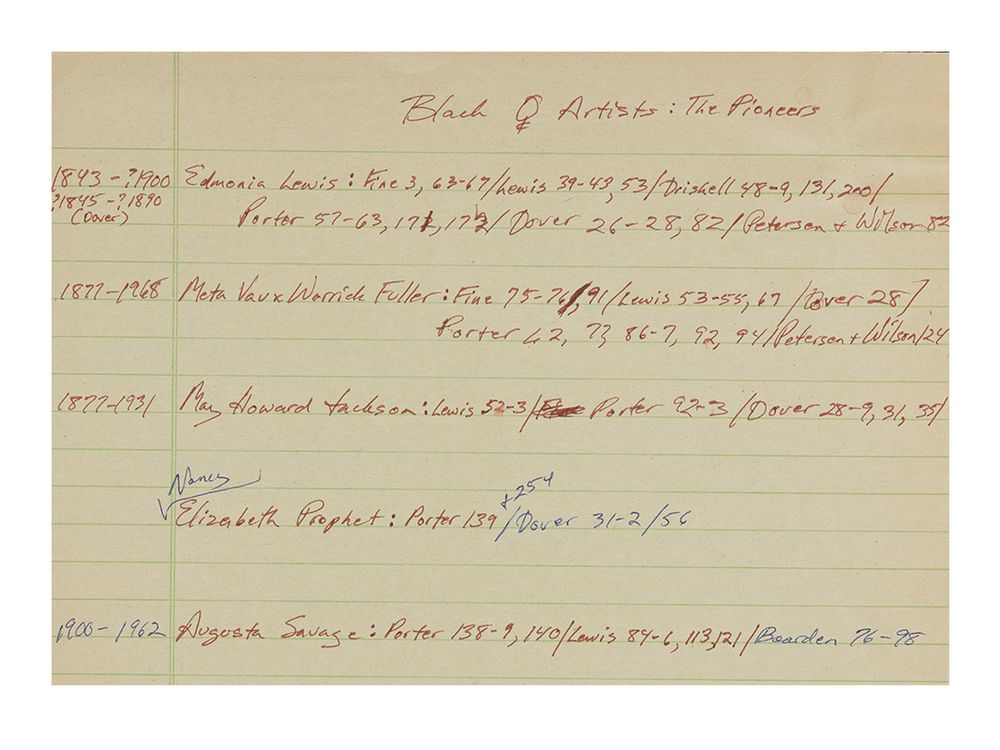 Black ♀ Artists: The Pioneers
1843-?1900 Edmonia Lewis: Fine 3, 63-67/Lewis 39-43, 53/Driskell 48-9, 131, 200/
?1845-?1890
(Dover) Porter 57-63, 171, 172/Dover 26-28, 82/Petersen + Wilson 82
1877-1968 Meta Vaux Warrick Fuller: Fine 75-76, 91/Lewis 53-55, 67/Dover 28/
Porter 62, 77, 86-7, 92, 94/Petersen + Wilson 124
1877-1931 May Howard Jackson: Lewis 52-3/ Porter 92-3/Dover 28-9, 31, 35/
Nancy
Elizabeth Prophet: Porter 139 + 254/Dover 31-2/56
1900-1962 Augusta Savage: Porter 138-9, 140/Lewis 84-6, 113, 121/Bearden 76-98